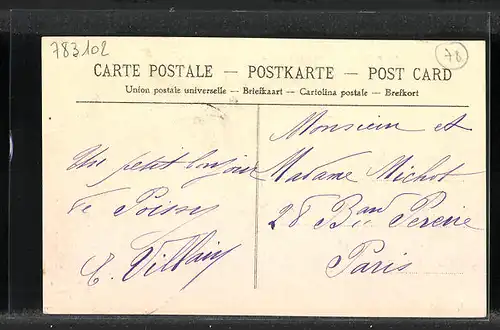 783102
78
CARTE POSTALE — POSTKARTE — POST CARD
Union postale universelle — Briefkaart — Cartolina postale — Brefkort
Un petit bonjour
de Poissy
E. Villain
Monsieur et
Madame Michot
28 Bard Pereire
Paris